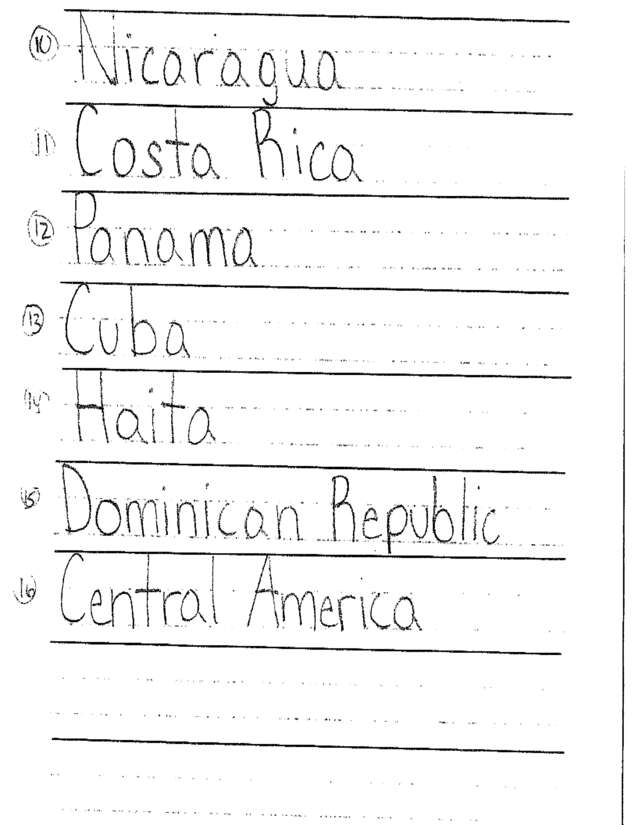 10 Nicaragua
11 Costa Rica
12 Panama
13 Cuba
14 Haita
15 Dominican Republic
16 Central America